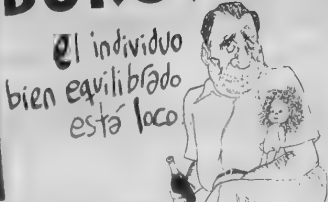 el individuo
bien equilibrado
está loco